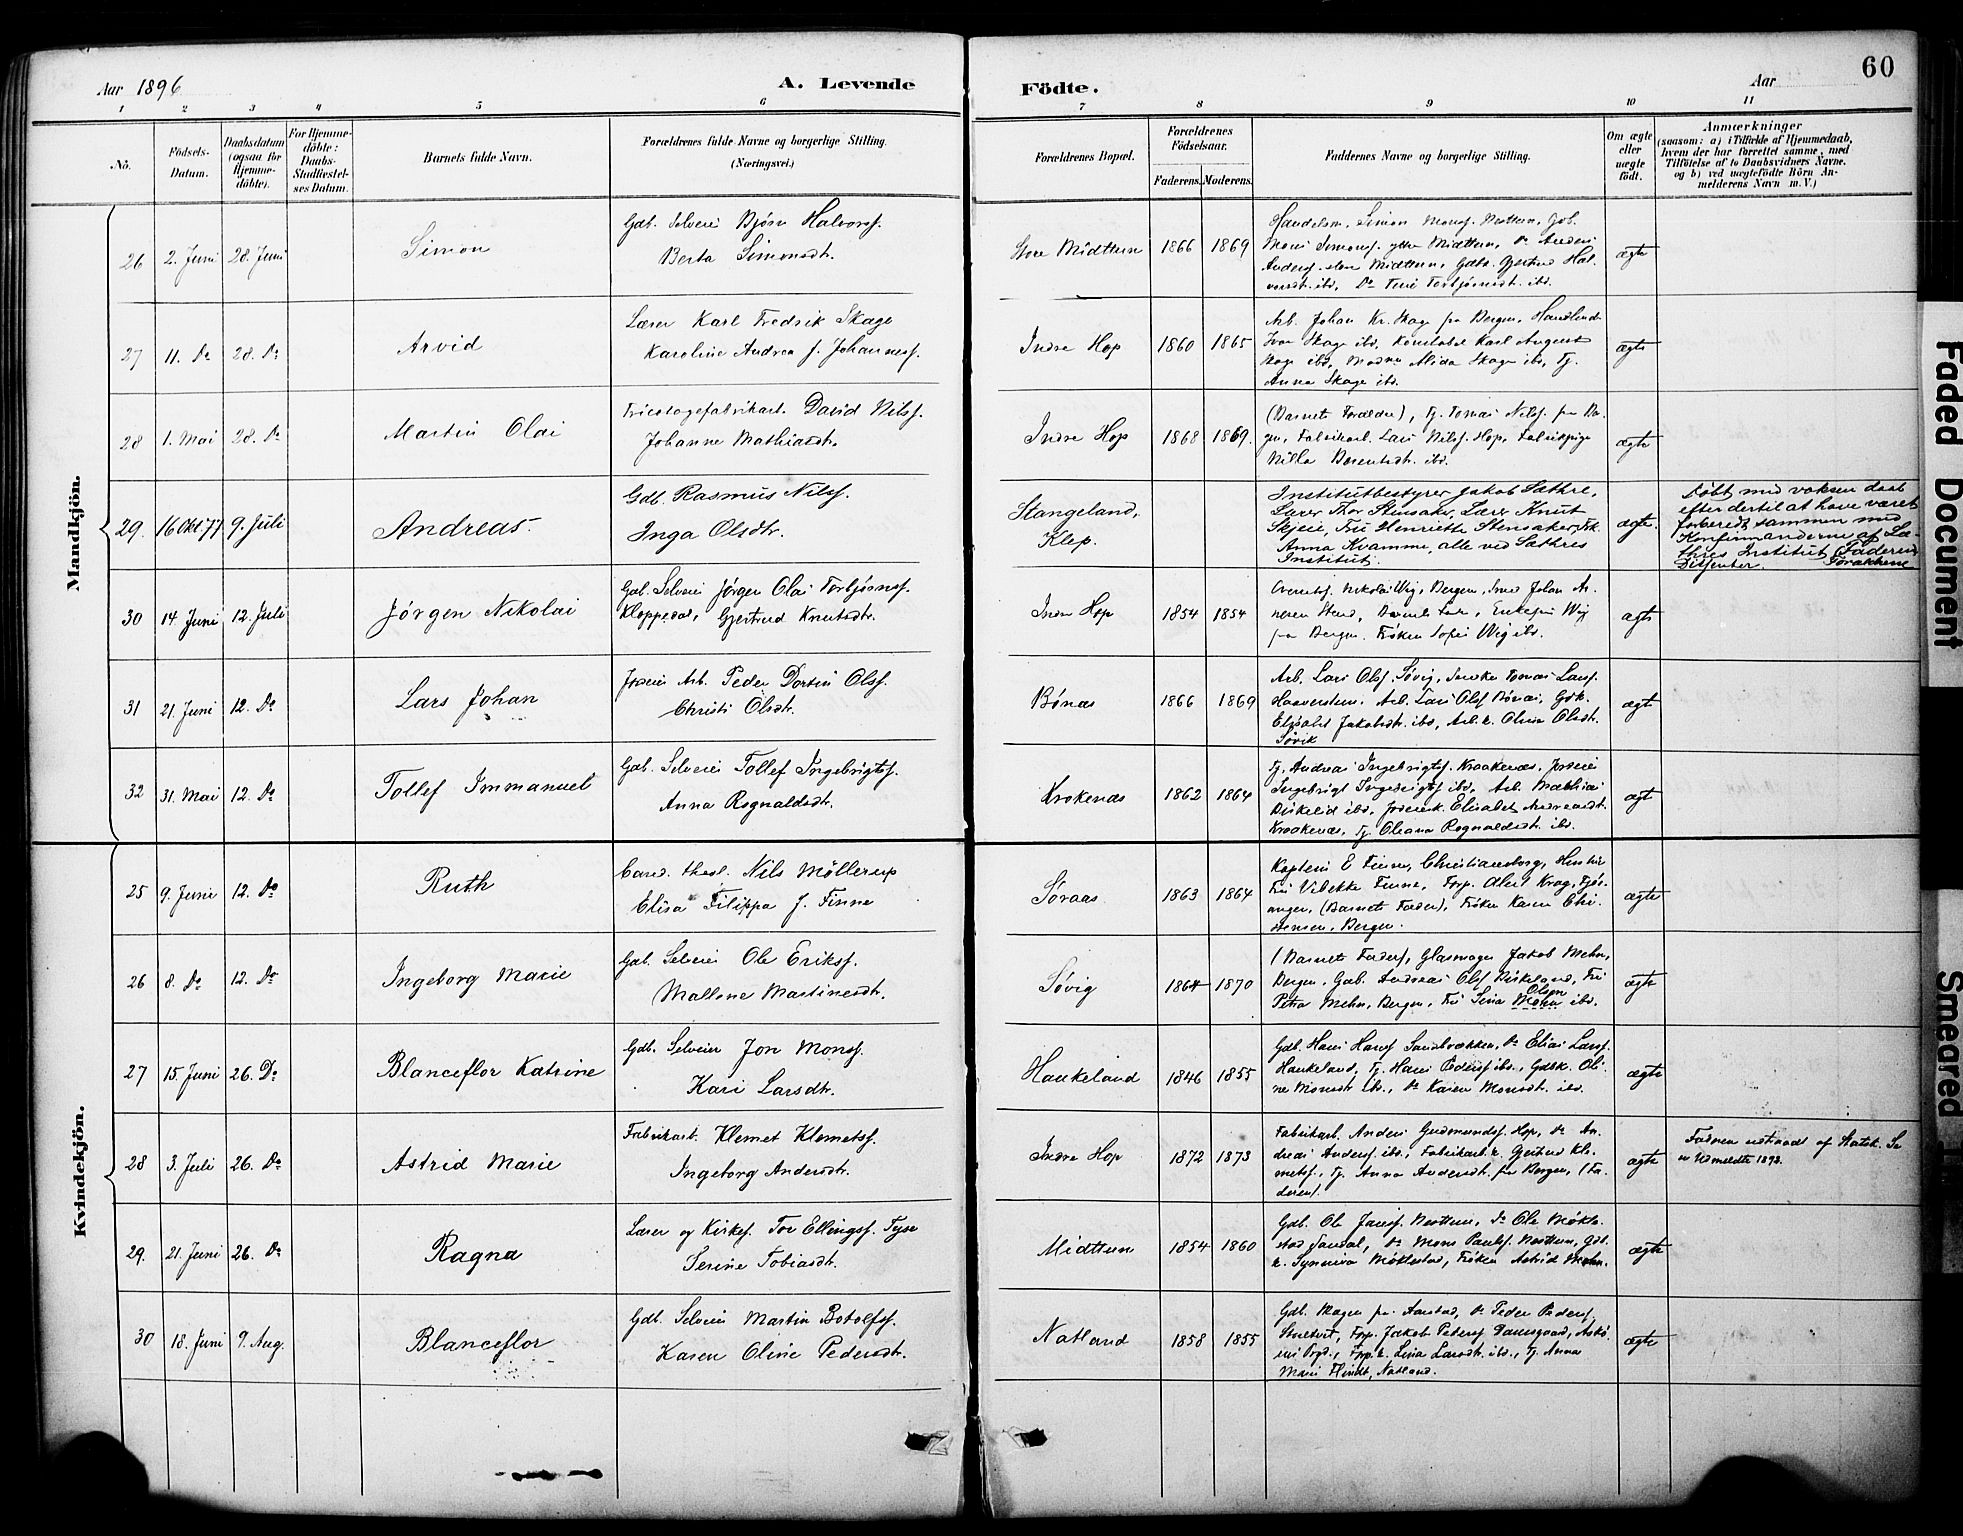 Aar 1896
A. Levende
Födte.
Aar
60
1 2 3 4 5 6 7 8 9 10 11
No.
Födsels-
Datum.
Daabsdatum
(ogsaa for
Hjemme-
döbte).
For Hjemme-
döbte:
Daabs-
Stadfæstel-
ses Datum.
Barnets fulde Navn.
Forældrenes fulde Navne og borgerlige Stilling.
(Næringsvei.)
Forældrenes Bopæl.
Forældrenes
Födselsaar.
Faderens. Moderens.
Faddernes Navne og borgerlige Stilling.
Om ægte
eller
uægte
født.
Anmærkninger
(saasom: a) i Tilfælde af Hjemmedaab,
hvem der har forrettet samme, med
Tilføielse af to Daabsvidners Navne.
og b) ved uægtefödte Börn An-
melderens Navn m. V.)
Mandkjön.
26 2. Juni 28. Juni Simon
Gdb. Selveier Bjørn Halvorss.
Berta Simonsdt.
Store Midttun 1866 1869
Handelsm. Simon Monss. Nesttun, Gdb.
Mons Simonss. ytre Midttun, Do Anders
Anderss. store Midttun, Gdbk. Gjertrud Hal-
vorsdt. ibd, Do Torbjørnsdt. ibd.
ægte
27 11. Do 28. Do Arvid
Lærer Karl Fredrik Skage
Karoline Andrea f. Johanness.
Indre Hop 1860 1865
Arb. Johan Kr. Skage fra Bergen,
Ivar Skage ibd, Konstabel Karl August
Skage ibd, Madm. Alida Skage ibd, Tj.
Anna Skage ibd.
ægte
28 1. Mai 28. Do Martin Olai
Tricotagefabrikarb. David Nilss.
Johanne Mathiasdt.
Indre Hop 1868 1869.
(Barnets Forældre), Tj. Tomas Nilss. fra Ber-
gen, Fabrikarb. Lars Nilss. Hop, Fabrikpige
Nilla Berentsdt. ibd.
ægte
29. 16 Okt 77 9. Juli Andreas.
Gdb. Rasmus Nilss.
Inga Olsdtr.
Stangeland,
Klep.
Institutbestyrer Jakob Sæthre,
Lærer Thor Stensaker, Lærer Knut
Skjeie, Fru Henriette Stensaker, Frk.
Anna Kvamme, alle ved Sæthres
Institut.
ægte.
Døbt med voksen daab
efter dertil at have været
forberedt sammen med
Konfirmanderne af Sæ-
thres Institut (Faderen
Dissenter.
30 14 Juni 12. Juli Jørgen Nikolai
Gdb. Selveier Jørgen Olai Torbjørnss.
Kloppedal, Gjertrud Knutsdt.
Indre Hop 1854 1854
Nikolai Wig, Bergen, Johan
Stend, Barnets Far, Enkefru Wig
fra Bergen. Frøken Sofie Wig ibd.
ægte
31 21. Juni 12. Do Lars Johan
Arb. Peder Dortin Olss.
Christi Olsdt.
Bønæs 1866 1869
Arb. Lars Olss. Søvig, Tomas Larss.
Arb. Lars Olss Bønæs, Gdk.
Elisabet Jakobsdt. ibd, Arb.k. Olina Olsdt.
Søvik
ægte
32 31. Mai 12. Do Tollef Immanuel
Gdb. Selveier Tollef Ingebrigtss.
Anna Rognaldsdt.
Krokenæs 1862 1864
Tj. Andreas Ingebrigtss. Kraakenæs,
Ingebrigt Ingebrigtss ibd, Arb. Mathias
Birkelid ibd, Elisabet Andreasdt.
Kraakenæs, Tj. Oleana Rognaldsdt. ibd.
ægte
Kvindekjön.
25 9. Juni 12. Do Ruth
Cand. theol. Nils Möllerup
Elisa Filippa f. Finne
Søraas 1863 1864
Kaptein E Finne, Christiansborg,
Fru Vibekke Finne, Forp. Abel Krag, Fjøs-
anger, (Barnets Fader), Frøken Karen Chri-
stensen, Bergen.
ægte
26 8. Do 12. Do Ingeborg Marie
Gdb. Selveier Ole Erikss.
Mallene Martinesdt.
Søvig 1864 1870
(Barnets Fader), Jakob Mehn,
Bergen, Gdb. Andreas Olss Birkeland, Fru
Petra Mehn, Bergen, Fru Lina Olsen ibd.
ægte
27 15. Juni 26. Do Blanceflor Katrine
Gdb. Selveier Jon Monss.
Kari Larsdtr.
Haukeland 1846 1855
Gdb. Hans Hanss Sandbrekken, Do Elias Larss.
Haukeland, Tj. Hans Pederss ibd., Gdbk. Oli-
ne Monsdt ibd., Do Karen Monsdt. ibd.
ægte
28 3. Juli 26. Do Astrid Marie
Fabrikarb. Klemet Klemetss.
Ingeborg Andersdt.
Indre Hop 1872 1873
Fabrikarb. Anders Gudmundss. Hop, Do An-
dreas Anderss. ibd., Fabrikarb.k. Gjertrud Kle-
metss., Tj. Anna Andersdt. fra Bergen, (Fa-
deren).
ægte
Faderen udtraadt af Statsk. Se
Udmeldte 1893.
29. 21. Juni 26. Do Ragna
Lærer og Kirkes. Tor Ellingss. Tyse
Serine Tobiasdt.
Midttun 1854 1860
Gdb. Ole Janss. Nesttun, Do Ole Møkle-
stad Sandal, Do Mons Paulss. Nesttun, Gdb.
k. Synneva Møklestad, Frøken Astrid Mohn.
ægte
30 18. Juni 9. Aug. Blanceflor
Gdb. Selveier Martin Botolfss.
Karen Oline Pedersdt.
Natland 1858 1855
Gdb. Magne fra Aarstad, Do Peder Pederss,
Fpp. Jakob Pederss Damsgaard, Askø-
ens Prgd., Fpp.k. Lina Larsdt. ibd., Tj. Anna
Marie Flindt, Natland.
ægte
Faded Document
Smeared